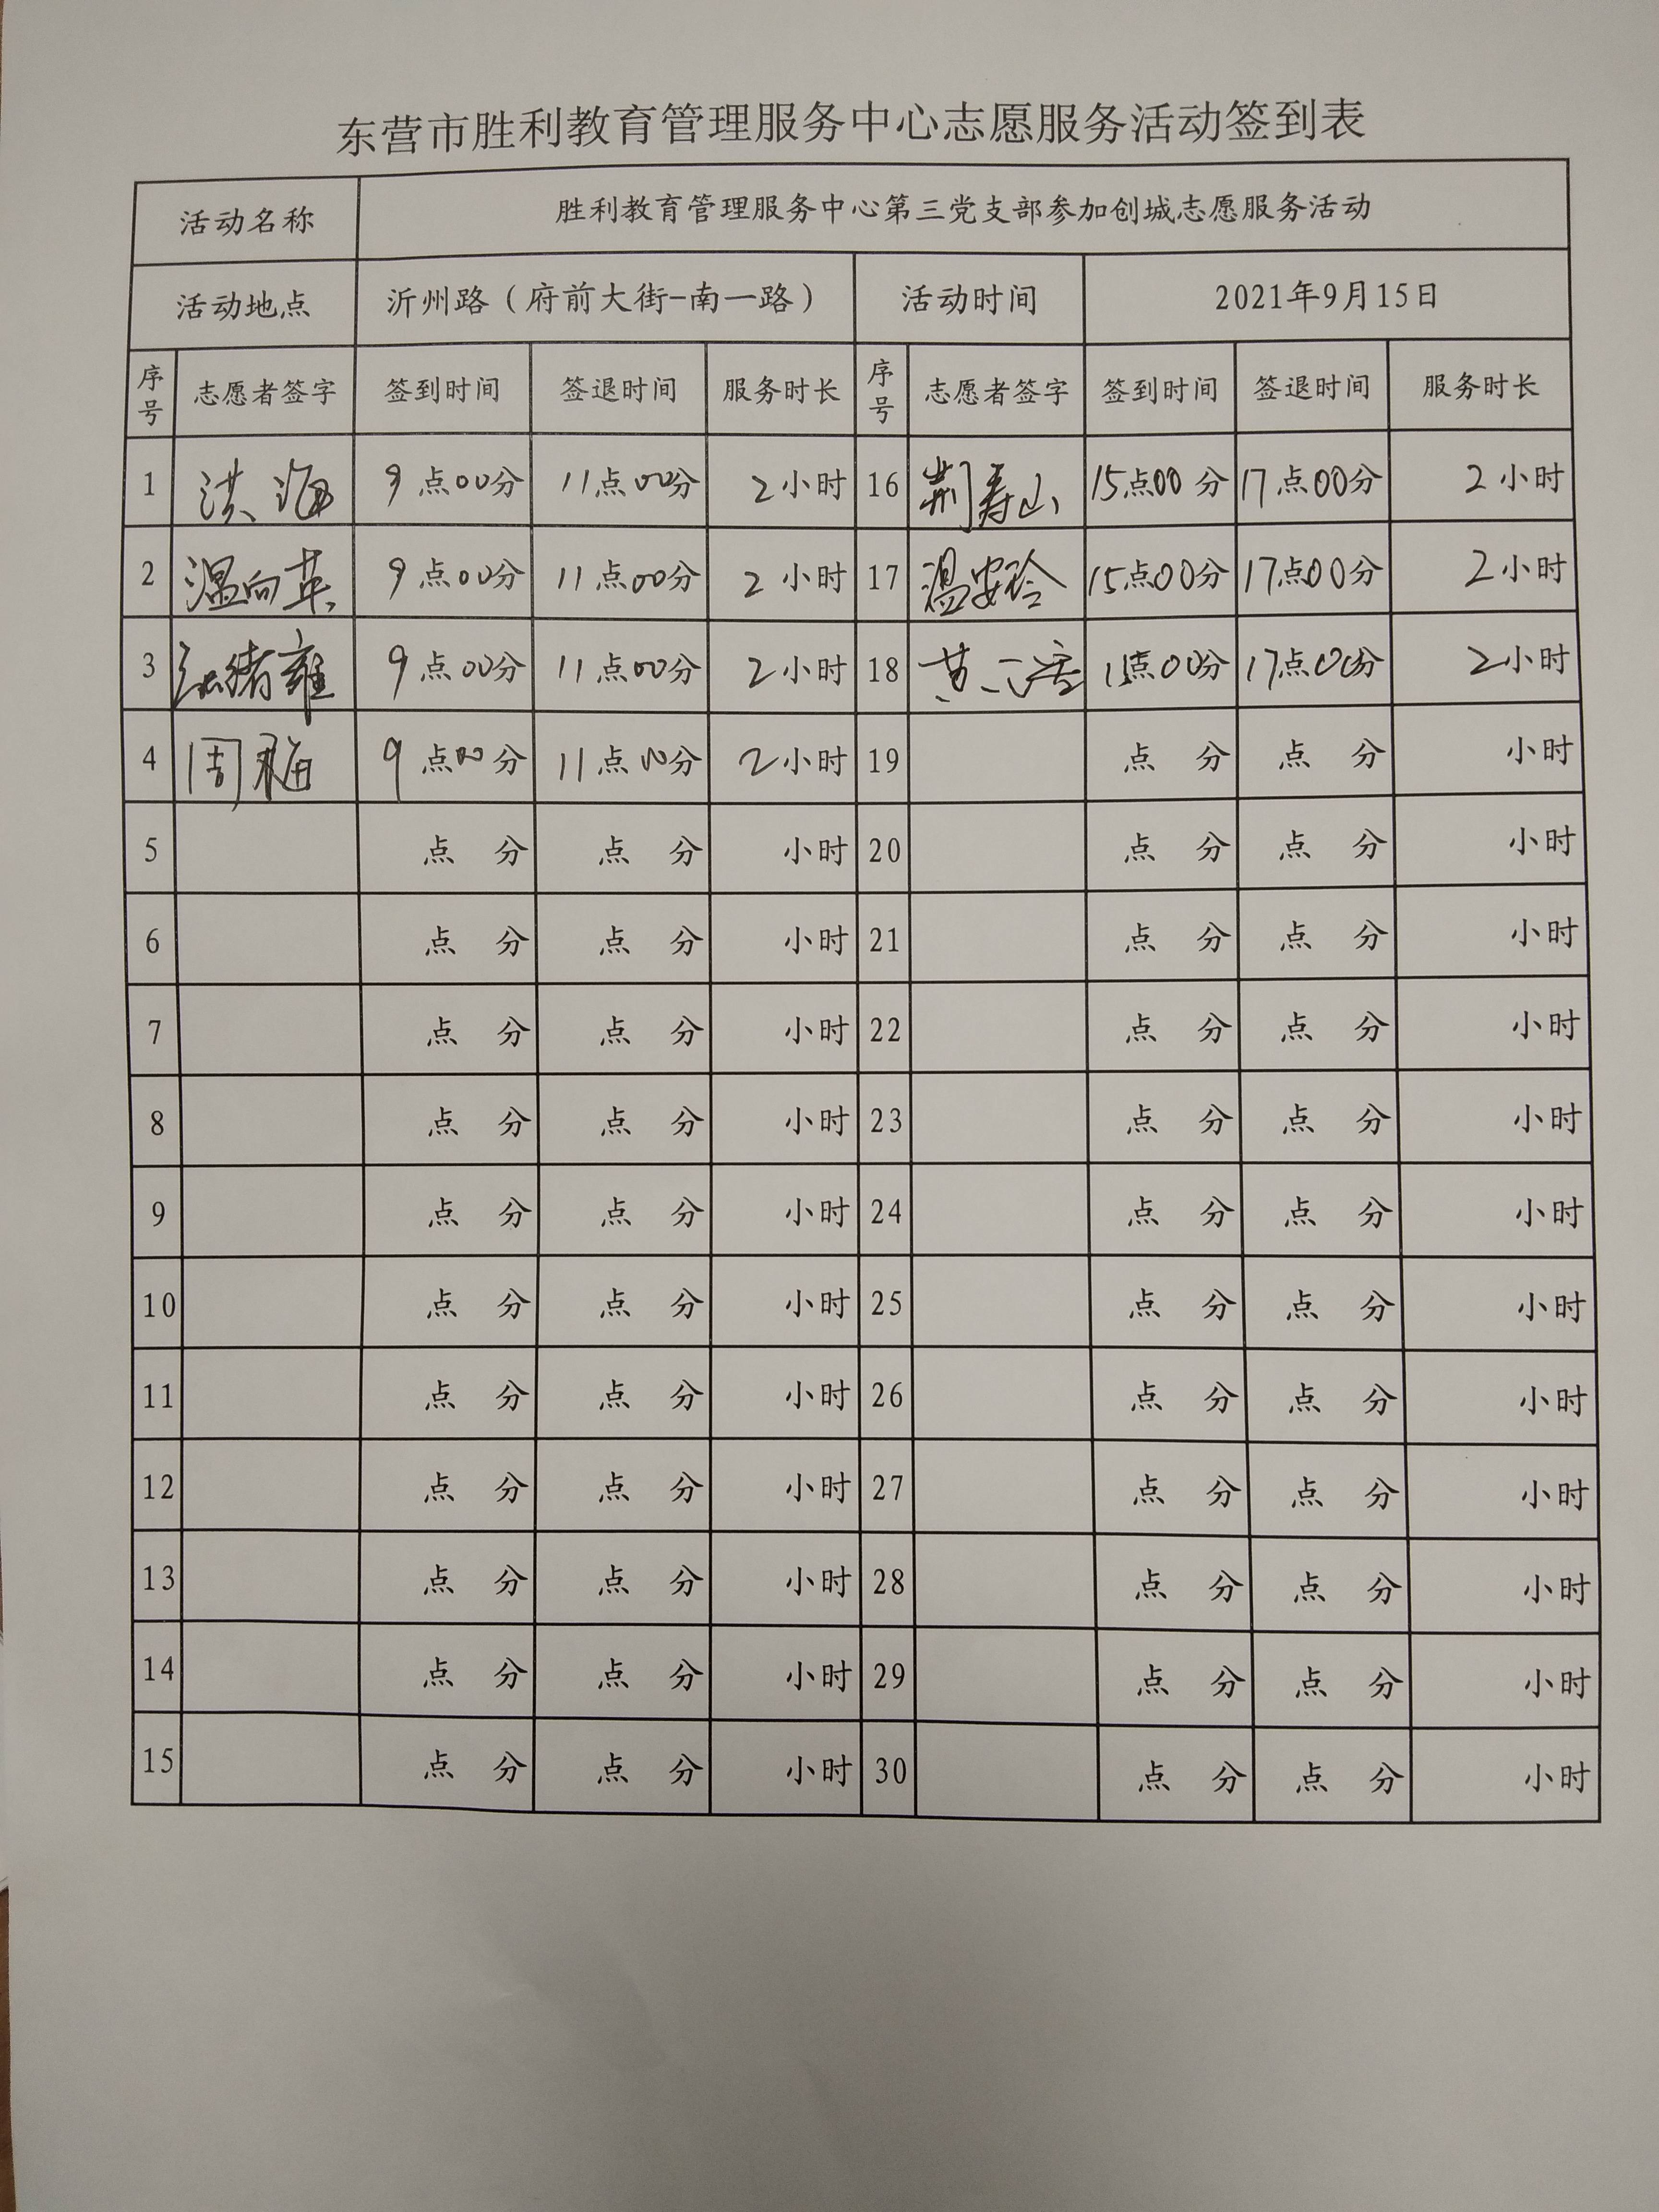 东营市胜利教育管理服务中心志愿服务活动签到表
活动名称 胜利教育管理服务中心第三党支部参加创城志愿服务活动
活动地点 沂州路（府前大街-南一路） 活动时间 2021年9月15日
序号 志愿者签字 签到时间 签退时间 服务时长 序号 志愿者签字 签到时间 签退时间 服务时长
1 洪海 9点00分 11点00分 2小时 16 荆寿山 15点00分 17点00分 2小时
2 温向英 9点00分 11点00分 2小时 17 温安玲 15点00分 17点00分 2小时
3 绪雍 9点00分 11点00分 2小时 18 黄 15点00分 17点00分 2小时
4 周梅 9点00分 11点00分 2小时 19 点 分 点 分 小时
5 点 分 点 分 小时 20 点 分 点 分 小时
6 点 分 点 分 小时 21 点 分 点 分 小时
7 点 分 点 分 小时 22 点 分 点 分 小时
8 点 分 点 分 小时 23 点 分 点 分 小时
9 点 分 点 分 小时 24 点 分 点 分 小时
10 点 分 点 分 小时 25 点 分 点 分 小时
11 点 分 点 分 小时 26 点 分 点 分 小时
12 点 分 点 分 小时 27 点 分 点 分 小时
13 点 分 点 分 小时 28 点 分 点 分 小时
14 点 分 点 分 小时 29 点 分 点 分 小时
15 点 分 点 分 小时 30 点 分 点 分 小时